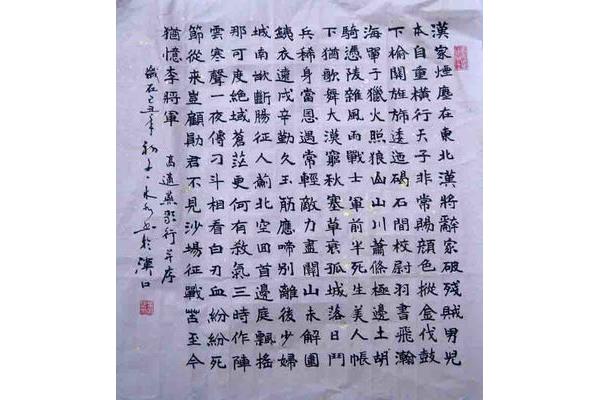 漢家煙塵在東北漢將辭家破殘賊男兒
本自重橫行天子非常賜顏色摐金伐鼓
下榆關旌旆逶迤碣石間校尉羽書飛瀚
海單于獵火照狼山山川蕭條極邊土胡
騎憑陵雜風雨戰士軍前半死生美人帳
下猶歌舞大漠窮秋塞草衰孤城落日鬥
兵稀身當恩遇常輕敵力盡關山未解圍
銕衣遠戍辛勤久玉筋應啼別離後少婦
城南欲斷腸征人薊北空回首邊庭飄搖
那可度絕域蒼茫更何有殺氣三時作陣
雲寒聲一夜傳刁斗相看白刃血紛紛死
節從來豈顧勳君不見沙場征戰苦至今
猶憶李將軍
高適燕歌行并序
歲在己丑年初書於漢口